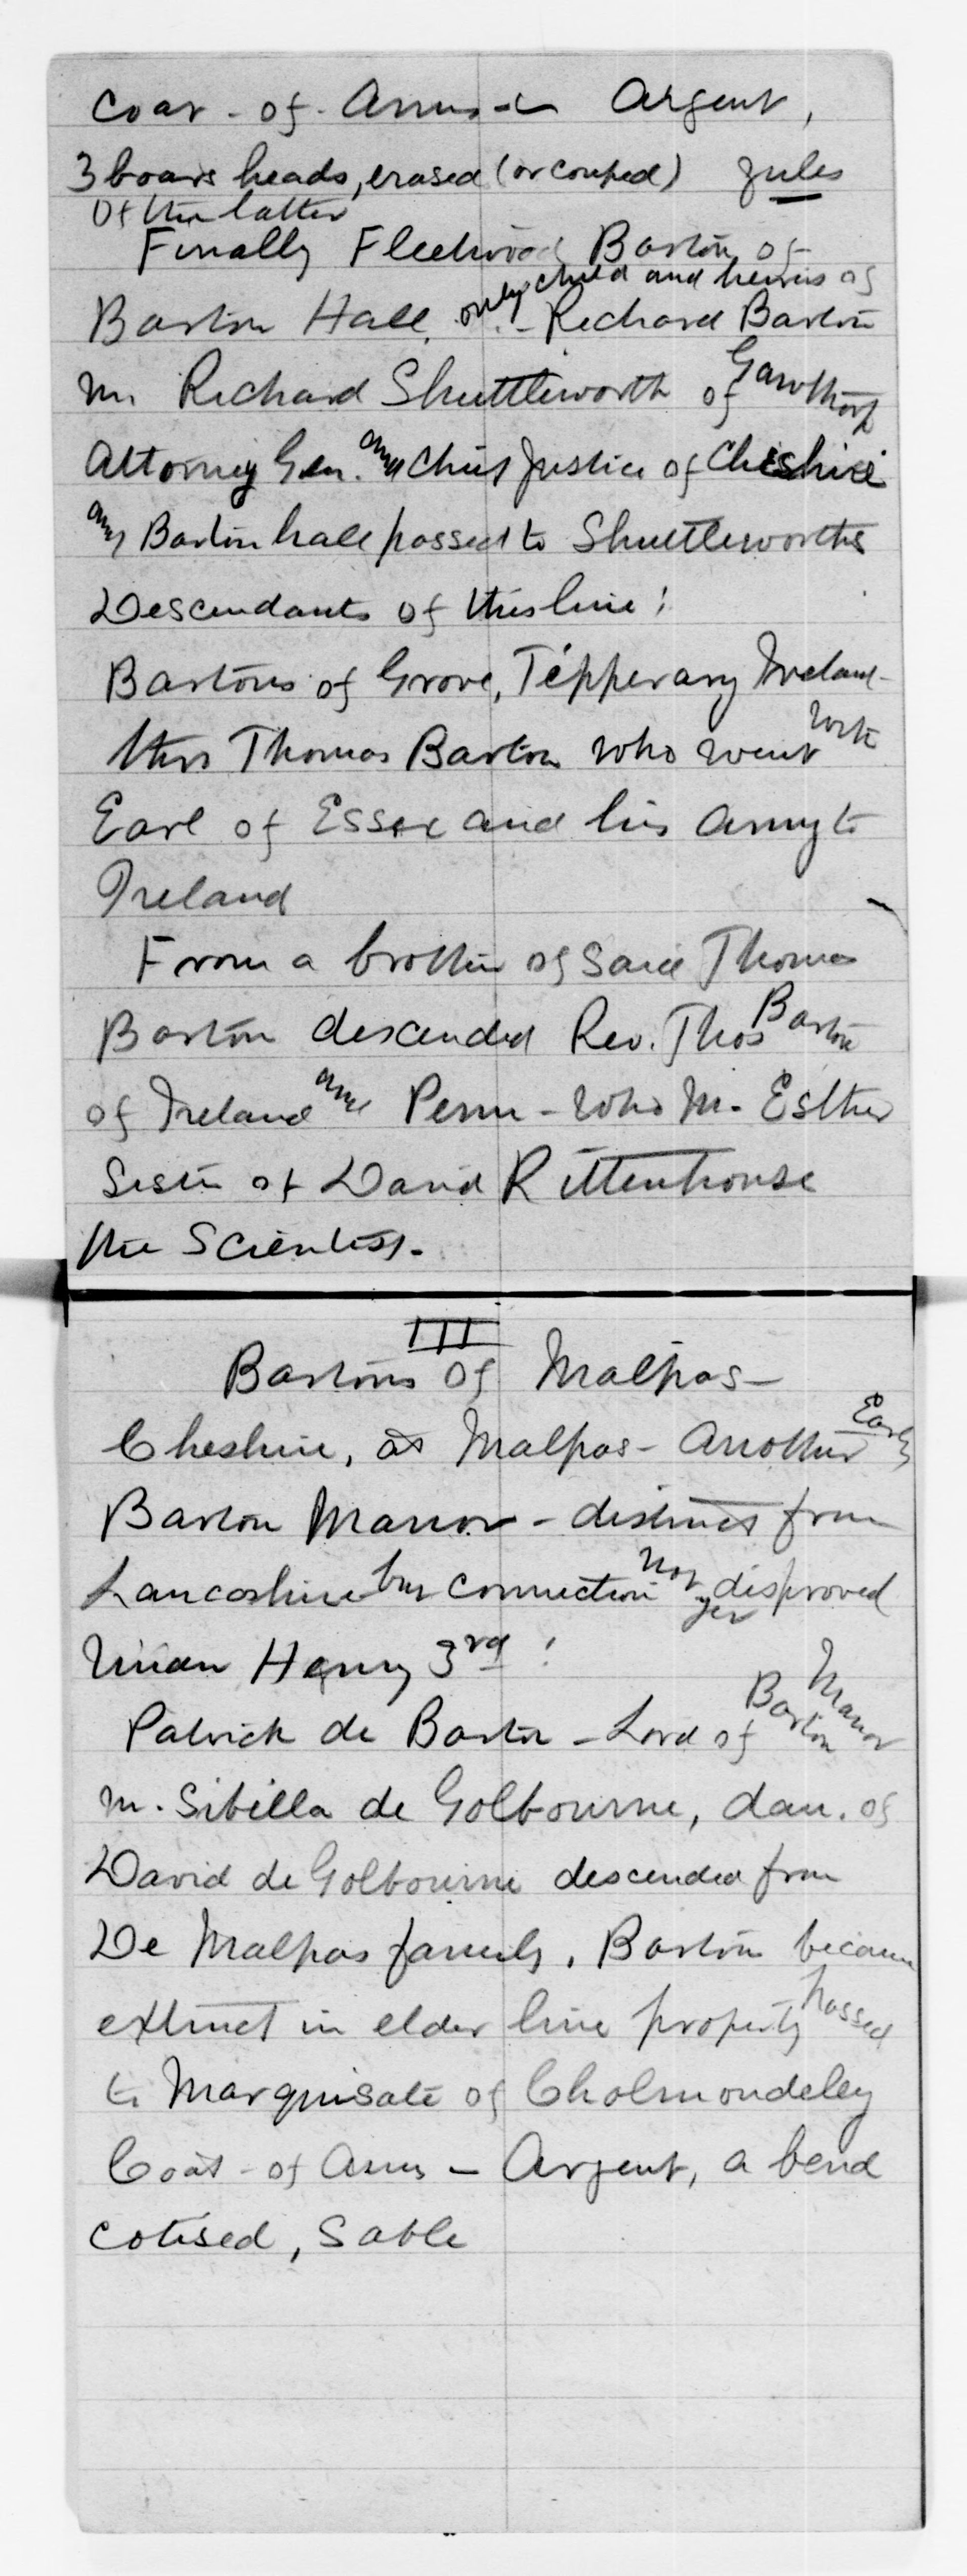 Coat-of-Arms - Argent,
3 boars heads, erased (or couped) gules
Of the latter
Finally Fleetwood Barton of
Barton Hall, only child and heiress of - Richard Barton
m. Richard Shuttleworth of Gawthorp
Attorney Gen. and Chief Justice of Cheshire
and Barton hall passed to Shuttleworths
Descendants of this line:
Bartons of Grove, Tipperary Ireland -
thro Thomas Barton who went with
Earl of Essex and his army to
Ireland
From a brother of said Thomas
Barton descended Rev. Thos Barton
of Ireland and Penn - who m. Esther
Sister of David Rittenhouse
the Scientist.
III
Bartons of Malpas -
Cheshire, at Malpas - Another Early
Barton Manor - distinct from
Lancashire but connection not yet disproved
Under Henry 3rd:
Patrick de Barton - Lord of Barton Manor
m. Sibilla de Golbourne, dau. of
David de Golbourne descended from
De Malpas family. Barton became
extinct in elder line property passed
to Marquisate of Cholmondeley
Coat-of Arms - Argent, a bend
cotised, Sable